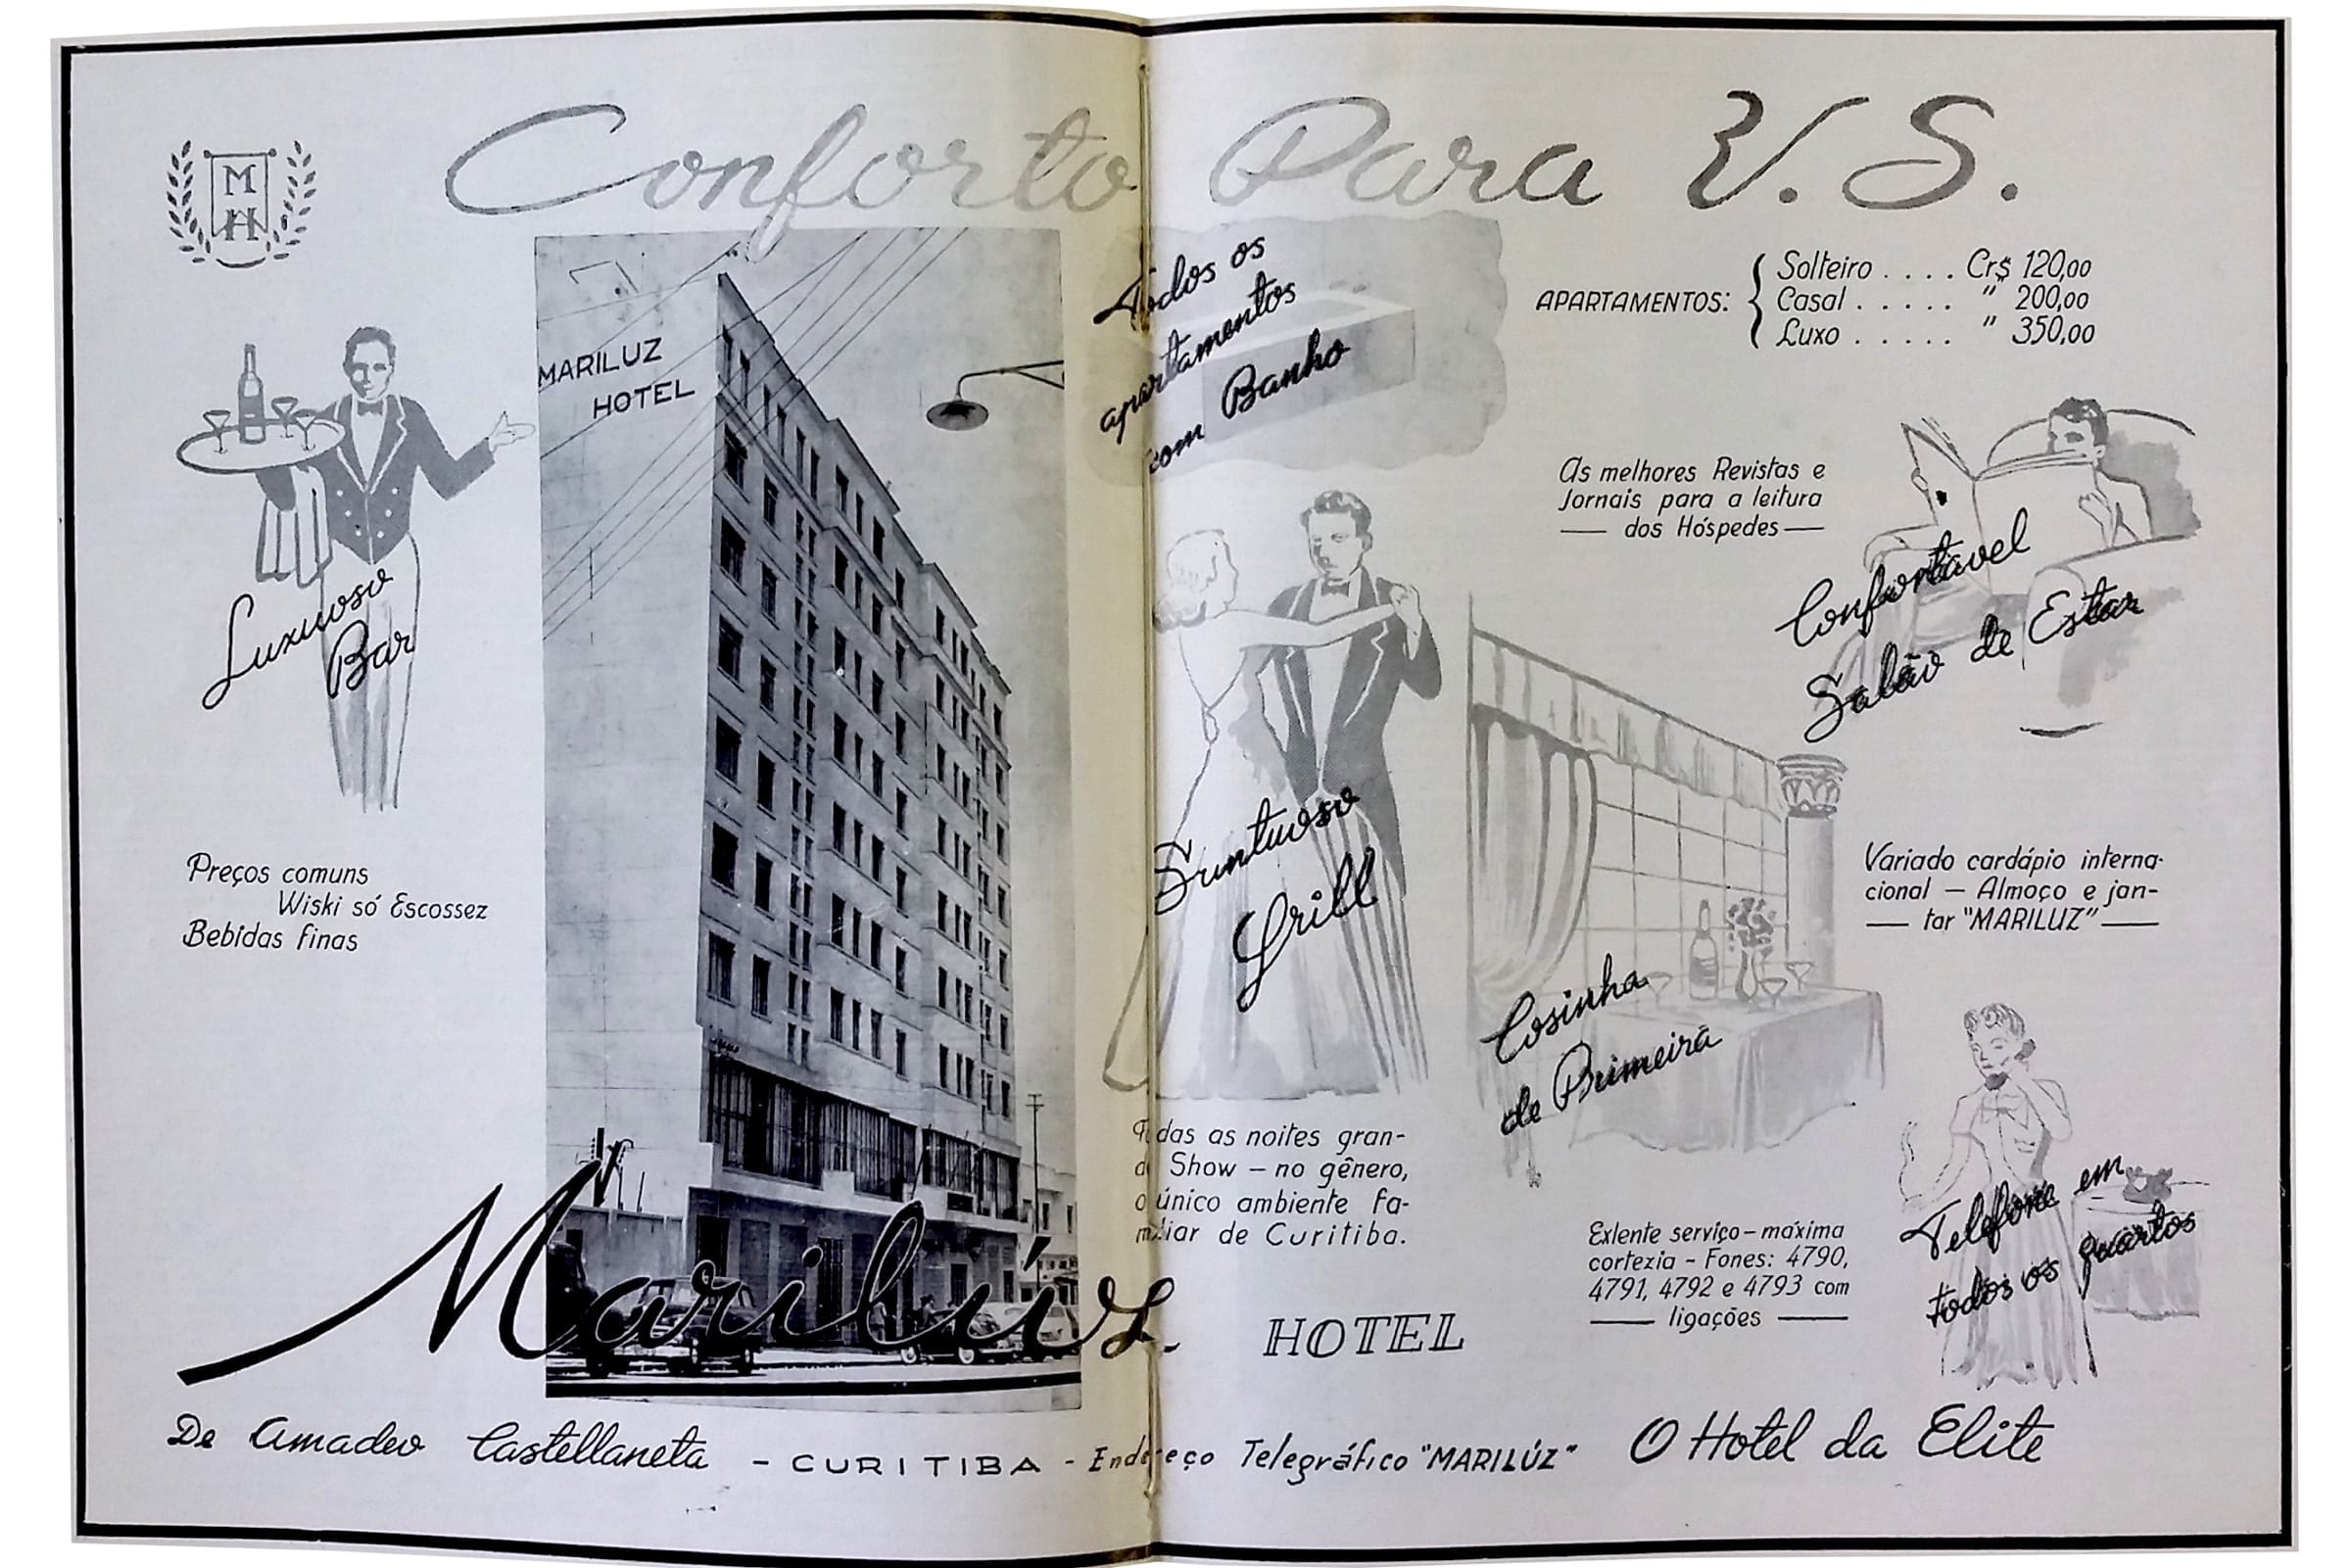 Conforto Para V. S.
M
H
MARILUZ
HOTEL
Luxuoso
Bar
Preços comuns
Wiski só Escossez
Bebidas finas
Todos os
apartamentos
com Banho
APARTAMENTOS:
Solteiro . . . . Cr$ 120,00
Casal . . . . . " 200,00
Luxo . . . . . " 350,00
As melhores Revistas e
Jornais para a leitura
— dos Hóspedes —
Confortavel
Salão de Estar
Suntuoso
Grill
Todas as noites gran-
de Show – no gênero,
o único ambiente fa-
miliar de Curitiba.
Cosinha
de Primeira
Variado cardápio interna-
cional – Almoço e jan-
— tar "MARILUZ" —
Exlente serviço – máxima
cortezia – Fones: 4790,
4791, 4792 e 4793 com
— ligações —
Telefone em
todos os quartos
Marilúz
HOTEL
De Amadeo Castellaneta - CURITIBA - Endereço Telegráfico "MARILÚZ" O Hotel da Elite